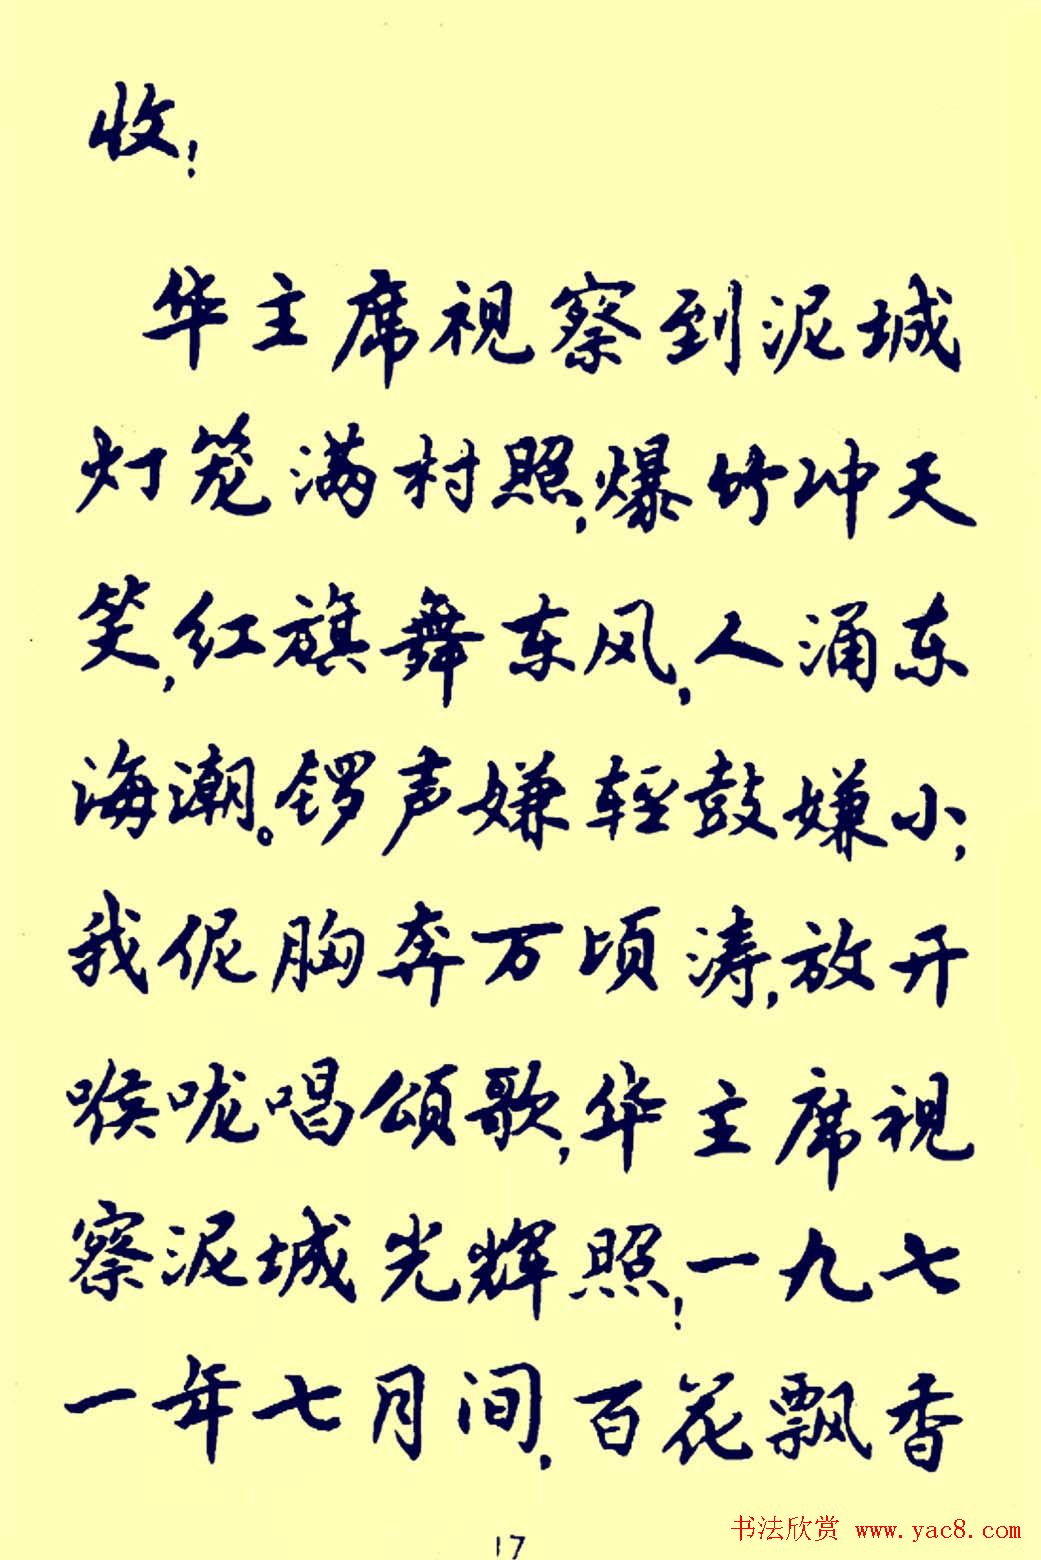 收！
华主席视察到泥城
灯笼满村照，爆竹冲天
笑，红旗舞东风，人涌东
海潮。锣声嫌轻鼓嫌小，
我伲胸奔万顷涛，放开
喉咙唱颂歌，华主席视
察泥城光辉照！一九七
一年七月间，百花飘香
17
书法欣赏 www.yac8.com